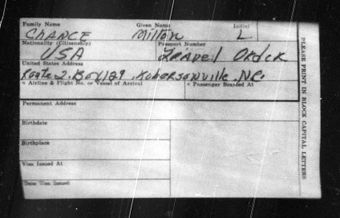 Family Name Given Name Initial
CHANCE Milton L
Nationality (Citizenship) Passport Number
USA Travel Order
United States Address
Route 2. Box 129. Robersonville. NC.
Airline & Flight No. or Vessel of Arrival Passenger Boarded At
Permanent Address
Birthdate
Birthplace
Visa Issued At
Date Visa Issued
PLEASE PRINT IN BLOCK CAPITAL LETTERS